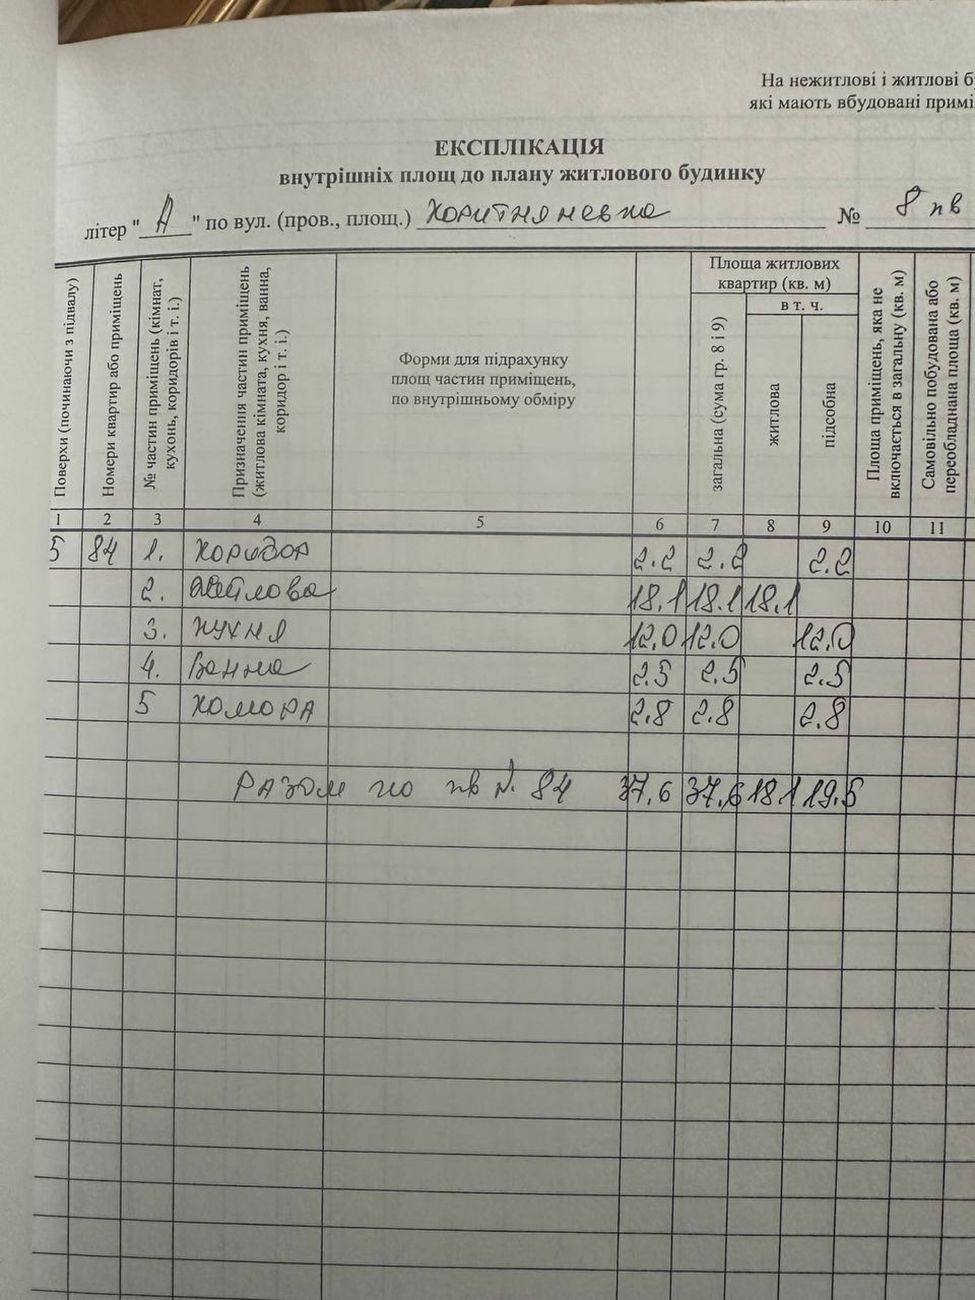 На нежитлові і житлові б
які мають вбудовані примі
ЕКСПЛІКАЦІЯ
внутрішніх площ до плану житлового будинку
літер " А " по вул. (пров., площ.) № 8 пв
Поверхи (починаючи з підвалу)
Номери квартир або приміщень
№ частин приміщень (кімнат, кухонь, коридорів і т. і.)
Призначення частин приміщень (житлова кімната, кухня, ванна, коридор і т. і.)
Форми для підрахунку
площ частин приміщень,
по внутрішньому обміру
Площа житлових
квартир (кв. м)
загальна (сума гр. 8 і 9)
в т. ч.
житлова
підсобна
Площа приміщень, яка не включається в загальну (кв. м)
Самовільно побудована або переобладнана площа (кв. м)
1 2 3 4 5 6 7 8 9 10 11
5 84 1. коридор 2.2 2.2 2.2
2. житлова 18.1 18.1 18.1
3. кухня 12.0 12.0 12.0
4. Ванна 2.5 2.5 2.5
5 комора 2.8 2.8 2.8
Разом по кв №. 84 37.6 37.6 18.1 19.5